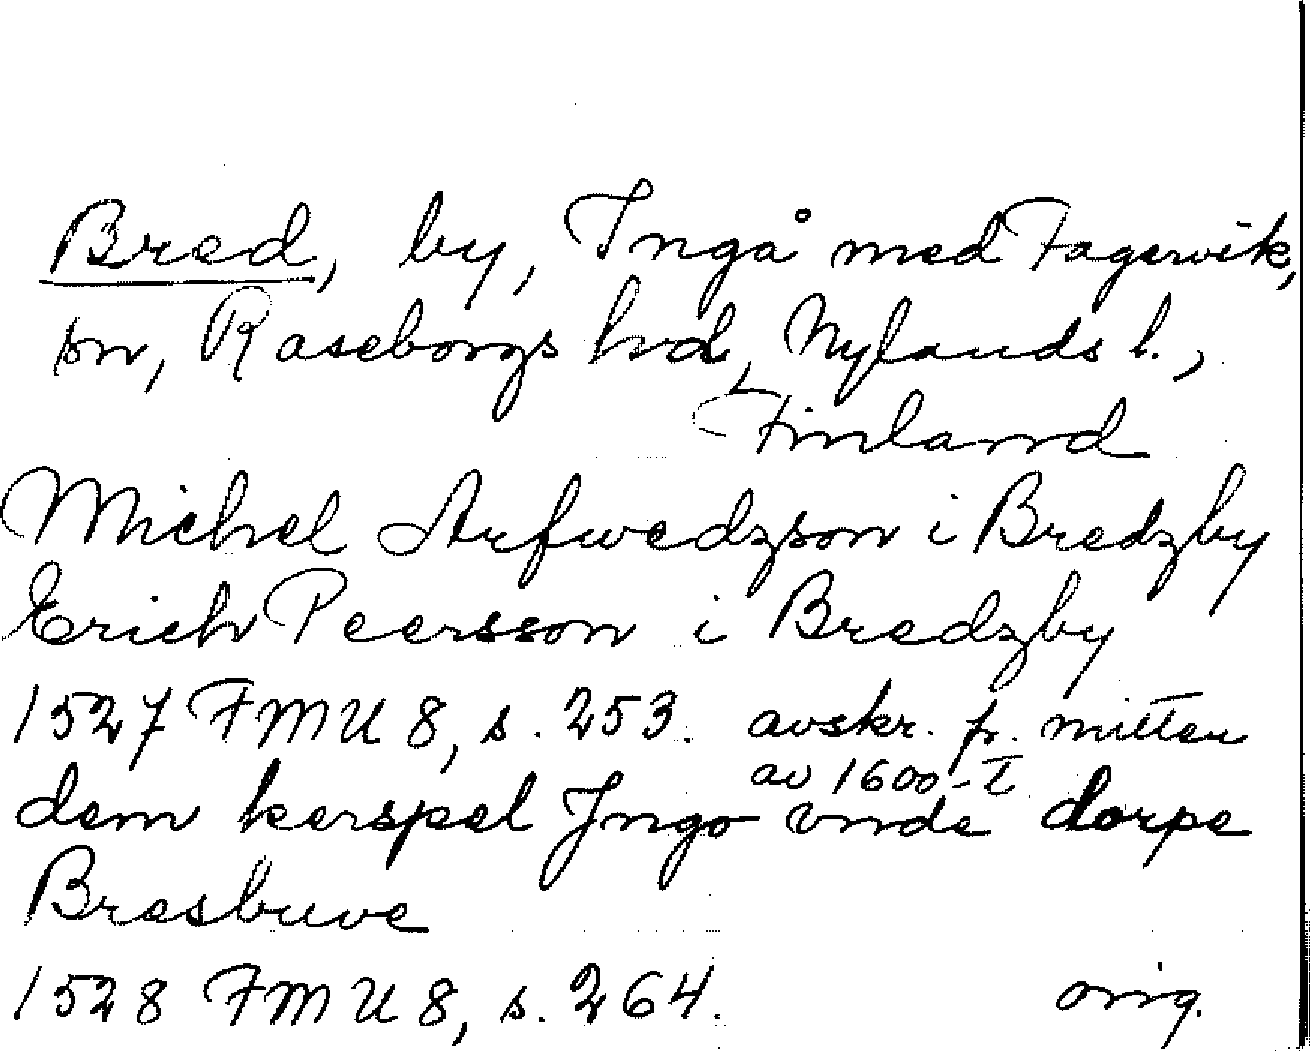 Bred, by, Ingå med Fagervik,
sn, Raseborgs hd, Nylands l.,
Finland
Michel Arfwedzson i Bredzby
Erich Peersson i Bredzby
1527 FMU 8, s. 253. avskr. fr. mitten
av 1600-t
dem kerspel Jngo vnde dorpe
Bresbuve
1528 FMU 8, s. 264. orig.